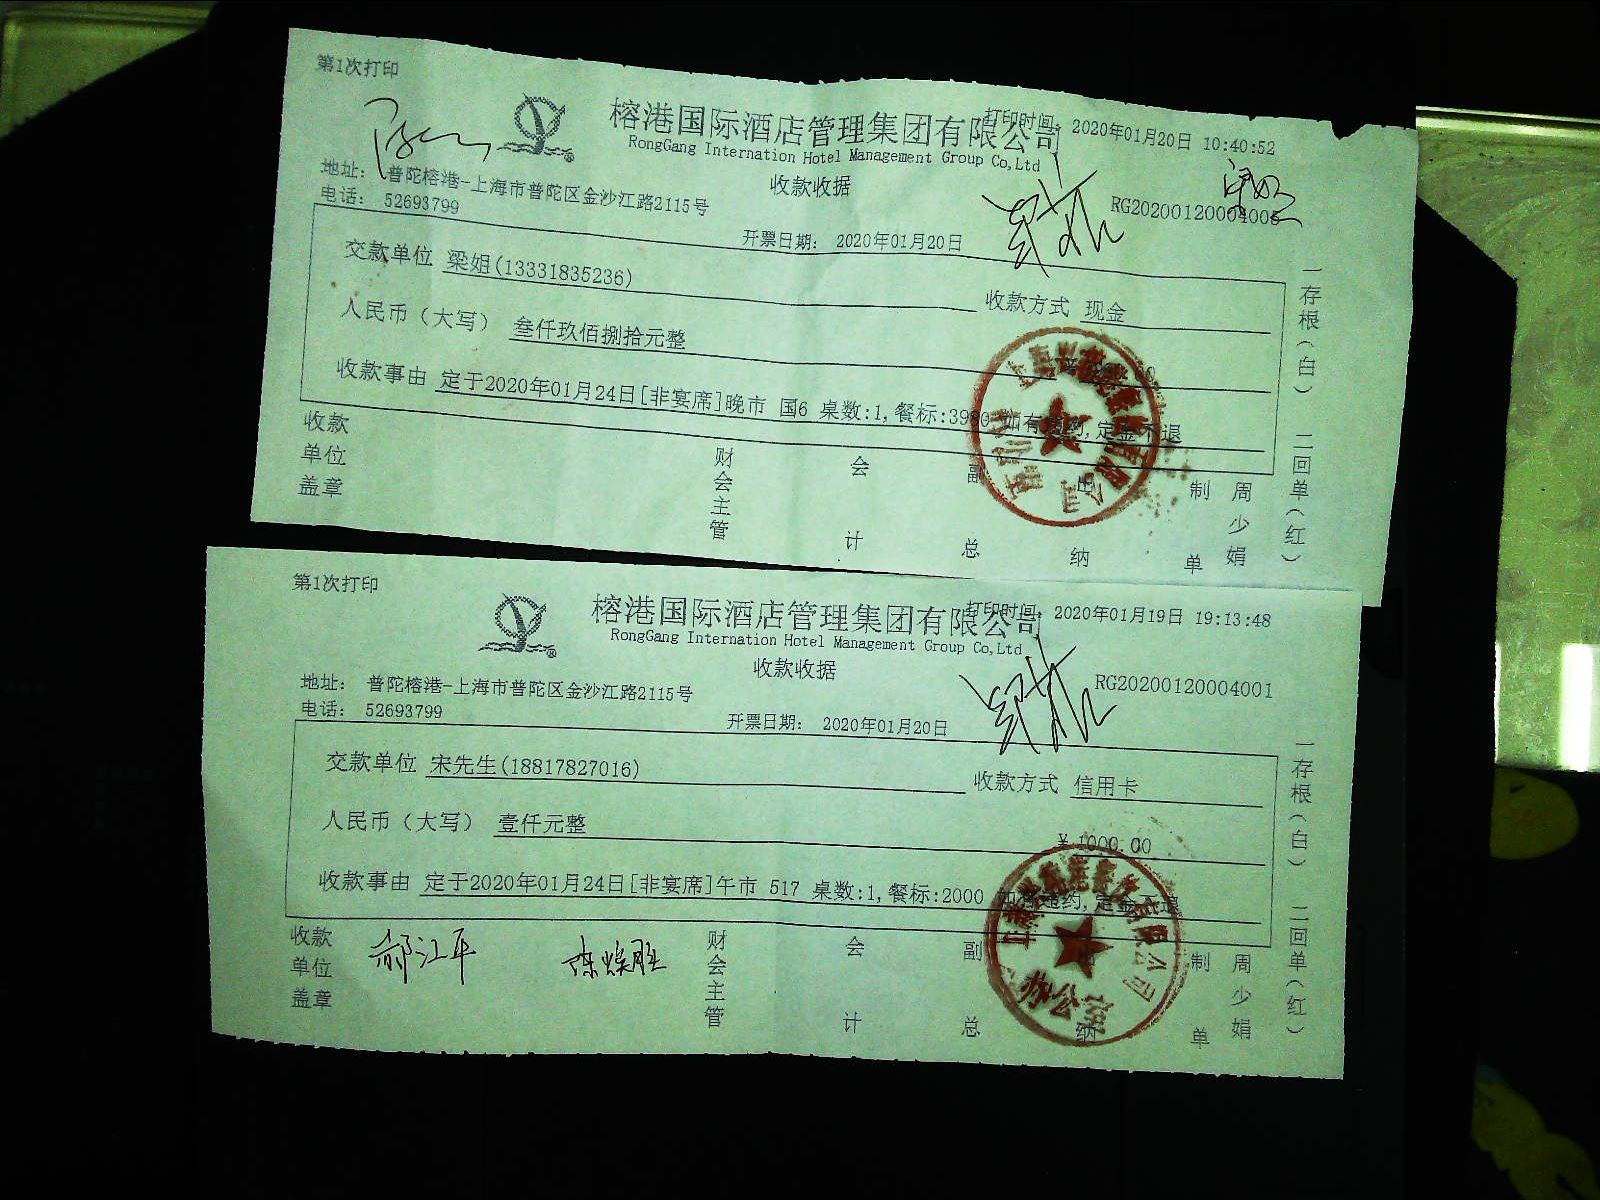 第1次打印
榕港国际酒店管理集团有限公司
打印时间: 2020年01月20日 10:40:52
RongGang Internation Hotel Management Group Co,Ltd
收款收据
地址: 普陀榕港-上海市普陀区金沙江路2115号
电话: 52693799
开票日期: 2020年01月20日
交款单位 梁姐(13331835236)
收款方式 现金
人民币（大写） 叁仟玖佰捌拾元整
收款事由 定于2020年01月24日[非宴席]晚市 国6 桌数:1,餐标:3980 如有违约,定金不退
收款单位盖章
财会主管
会计
副总
出纳
制单
周少娟
一存根(白)
二回单(红)
第1次打印
榕港国际酒店管理集团有限公司
打印时间: 2020年01月19日 19:13:48
RongGang Internation Hotel Management Group Co,Ltd
收款收据
RG20200120004001
地址: 普陀榕港-上海市普陀区金沙江路2115号
电话: 52693799
开票日期: 2020年01月20日
交款单位 宋先生(18817827016)
收款方式 信用卡
人民币（大写） 壹仟元整
¥ 1000.00
收款事由 定于2020年01月24日[非宴席]午市 517 桌数:1,餐标:2000 如有违约,定金不退
收款单位盖章
郝江平
陈焕胜
财会主管
会计
副总
纳
制单
周少娟
一存根(白)
二回单(红)